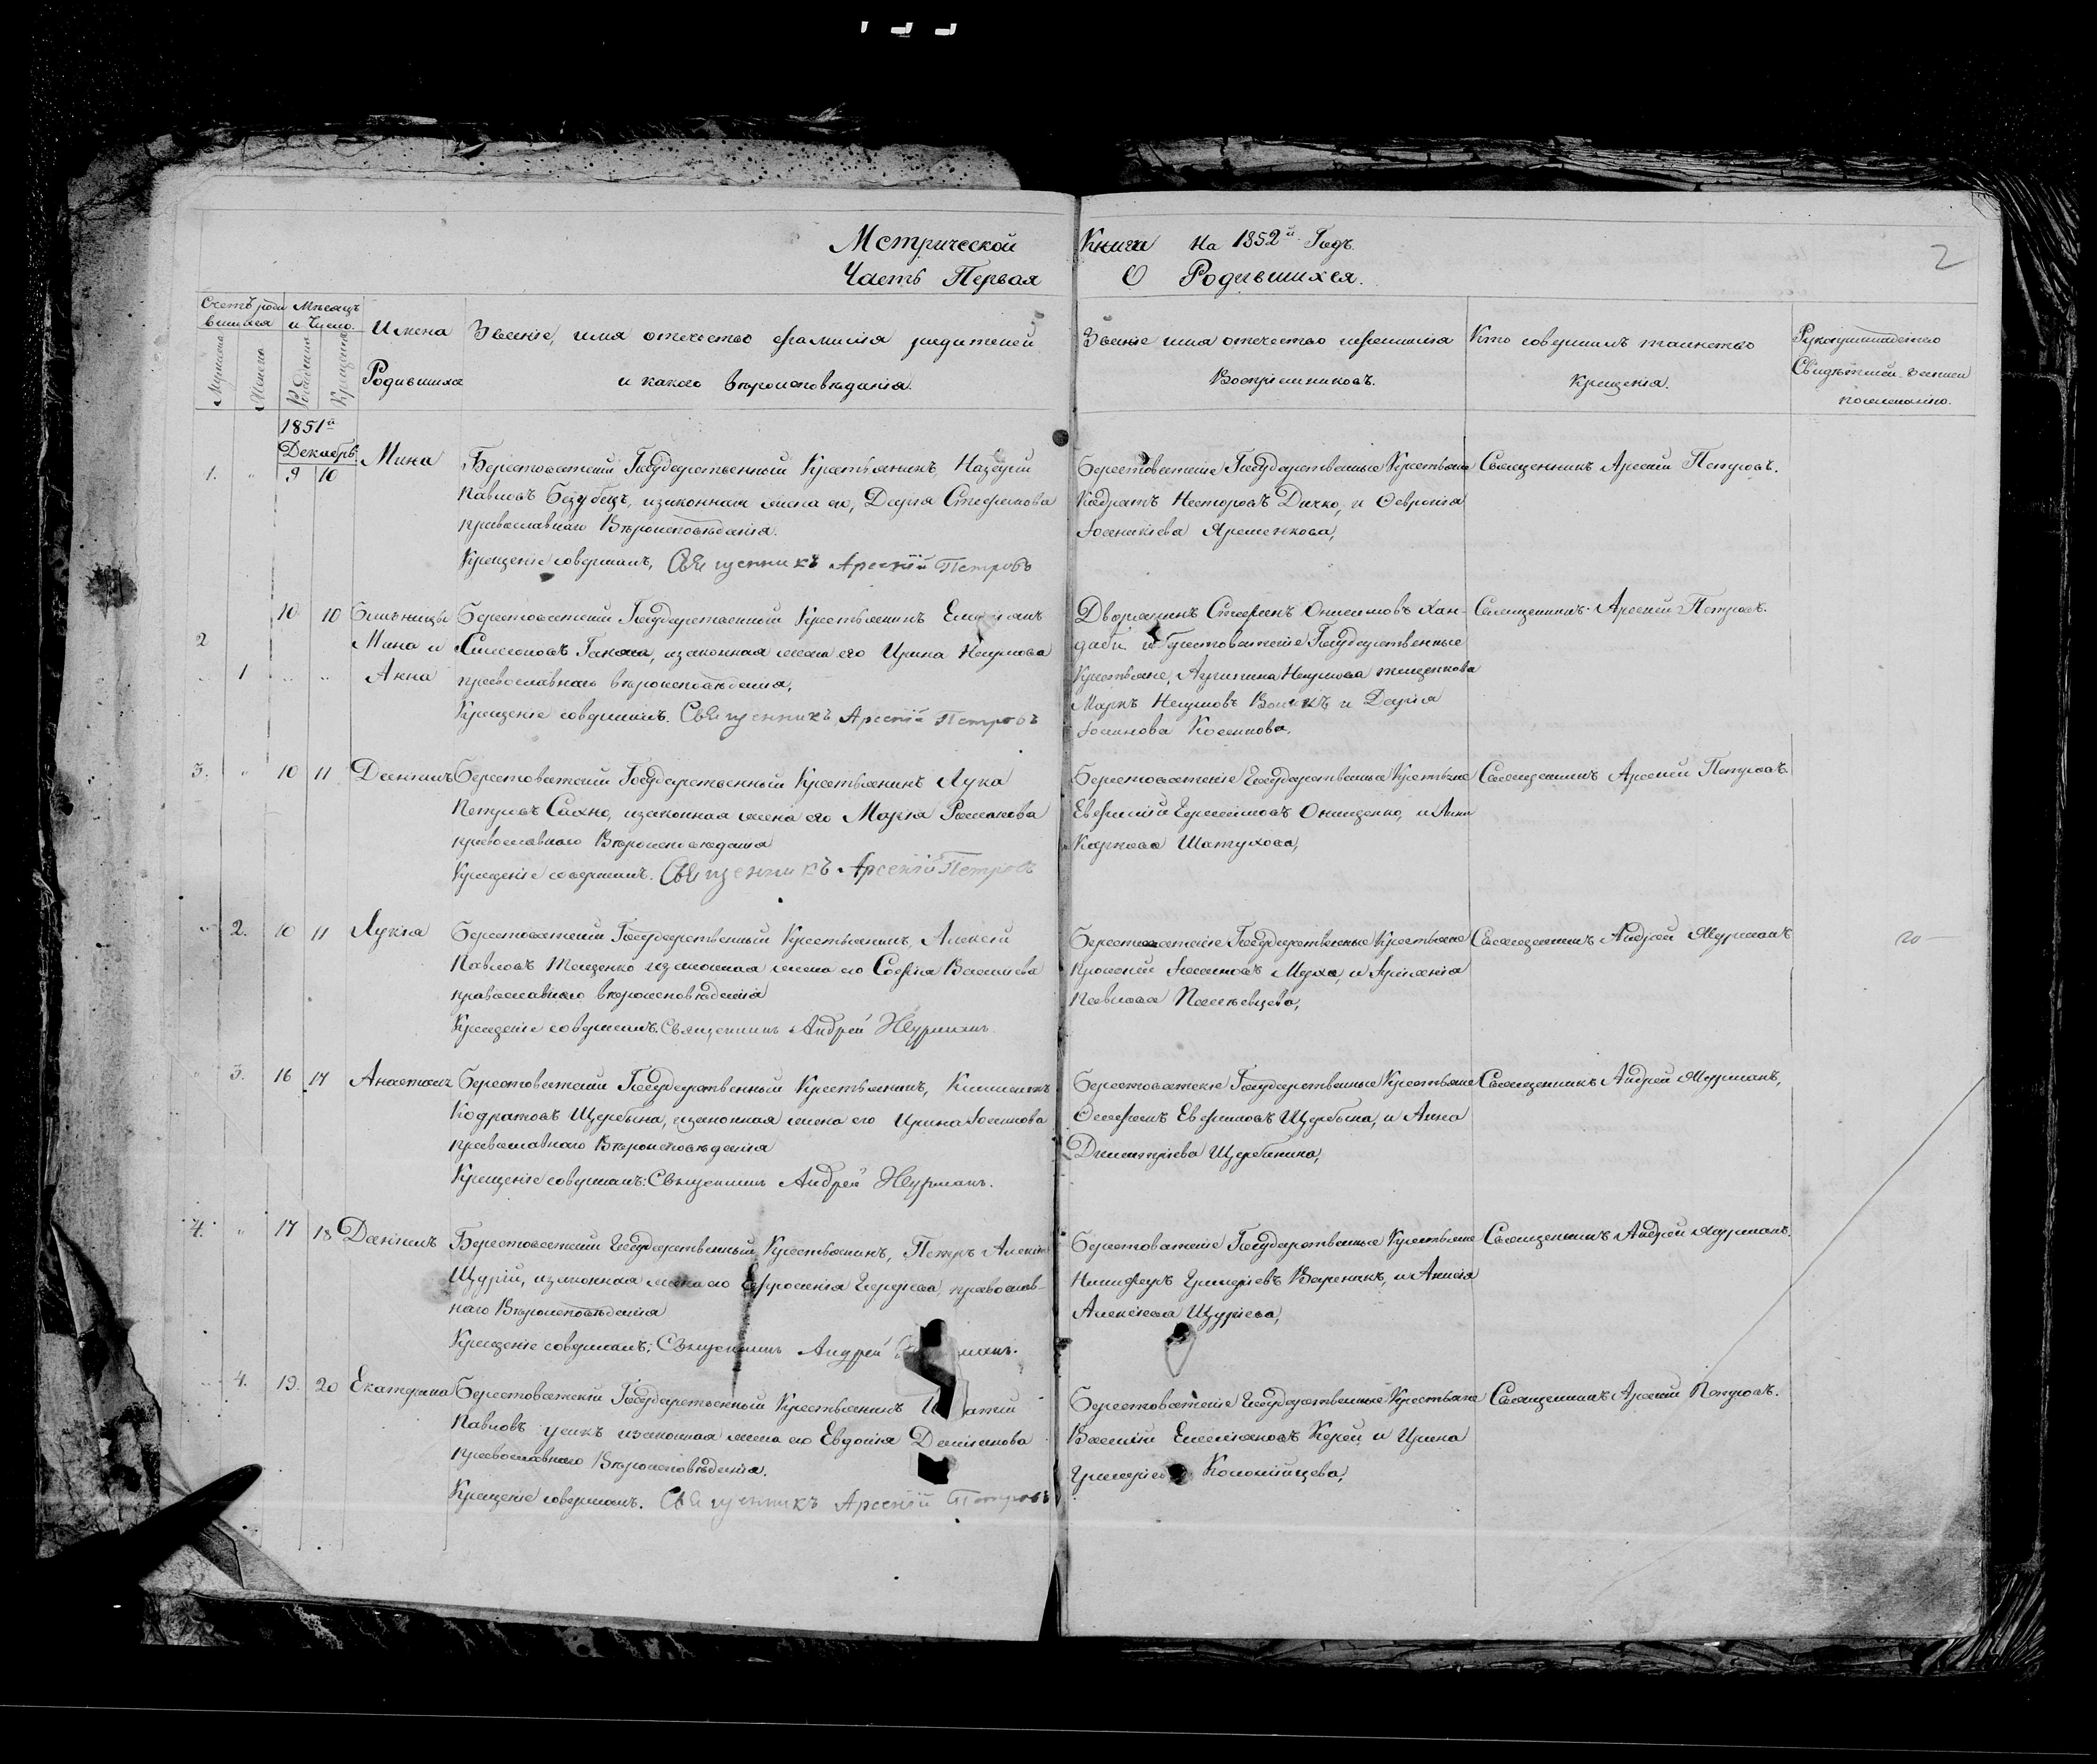 Метрической Книги на 1852й Годъ.
Часть Первая О Родившихся.
2
Счетъ роди
вшихся
Мѣсяцъ
и Число.
Имена
Родившихся
Званіе, имя отечество фамилія родителей
и какого вѣроисповѣданія.
Званіе имя отечество и фамилія
Воспріемниковъ.
Кто совершилъ таинство
Крещенія.
Рукоприкладство
Свидѣтелей
по желанію.
Мужеска
Женска
Рожденія
Крещенія
1851й
Декабрь
1. 9 10 Мина
Берестоватскій Государственный Крестьянинъ Назарій
Павловъ Безубецъ, и законная жена его, Дарія Стефанова
православнаго Вѣроисповѣданія.
Крещеніе совершилъ, Священникъ Арсеній Петровъ
Берестоватскіе Государственные Крестьяне
Кодратъ Несторовъ Дичко, и Февронія
Яременкова,
Священникъ Арсеній Петровъ.
2 1 10 10 Близницы
Мина и
Анна
Берестоватскій Государственный Крестьянинъ
и законная жена его Ирина Наумова
православнаго вѣроисповѣданія,
Крещеніе совершилъ. Священникъ Арсеній Петровъ
Дворянинъ Стефанъ Онисимовъ Хан-
и Берестоватскіе Государственные
Крестьяне, Агрипина Наумова
Маркъ Наумовъ и Дарія
Іоаннова
Священникъ Арсеній Петровъ.
3. 10 11 Даніилъ
Берестоватскій Государственный Крестьянинъ Лука
Петровъ Сахно, и законная жена его Марія Романова
православнаго Вѣроисповѣданія
Крещеніе совершилъ. Священникъ Арсеній Петровъ
Берестоватскіе Государственные Крестьяне
Евфимій Онищенко, и Анна
Карпова Шатухова,
Священникъ Арсеній Петровъ.
2. 10 11 Лукія
Берестоватскій Государственный Крестьянинъ, Алексій
Павловъ Тищенко и законная жена его Софія Василіева
православнаго вѣроисповѣданія
Крещеніе совершилъ. Священникъ Андрей Журманъ.
Берестоватскіе Государственные Крестьяне
Іоанновъ Муха, и
Павлова
Священникъ Андрей Журманъ
3. 16 17
Берестоватскій Государственный Крестьянинъ, Климентъ
Кодратовъ Щербина, и законная жена его Ирина Іоаннова
православнаго Вѣроисповѣданія
Крещеніе совершилъ: Священникъ Андрей Журманъ.
Берестоватскіе Государственные Крестьяне
Стефанъ Евфимовъ Щербина, и Анна
Димитріева Щербинина,
Священникъ Андрей Журманъ,
4. 17 18 Даніилъ
Берестоватскій Государственный Крестьянинъ, Петръ
Щурій, и законная жена его Ефросинія православ-
наго Вѣроисповѣданія
Крещеніе совершилъ: Священникъ Андрей
Берестоватскіе Государственные Крестьяне
Никифоръ Григоріевъ Вареникъ, и Анисія
Алексіева Щуріева,
Священникъ Андрей Журманъ.
4. 19. 20 Екатерина
Берестоватскій Государственный Крестьянинъ
Павловъ Усикъ и законная жена его Евдокія
православнаго Вѣроисповѣданія.
Крещеніе совершилъ. Священникъ Арсеній Петровъ
Берестоватскіе Государственные Крестьяне
Василій Емеліановъ и Ирина
Коломійцева,
Священникъ Арсеній Петровъ.